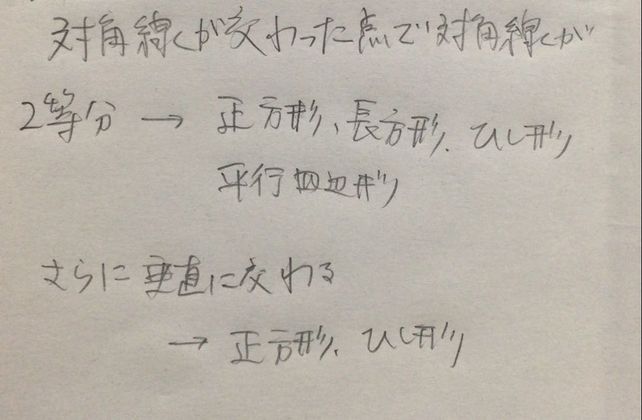 対角線が交わった点で対角線が
2等分 → 正方形、長方形、ひし形
平行四辺形
さらに垂直に交わる
→ 正方形、ひし形